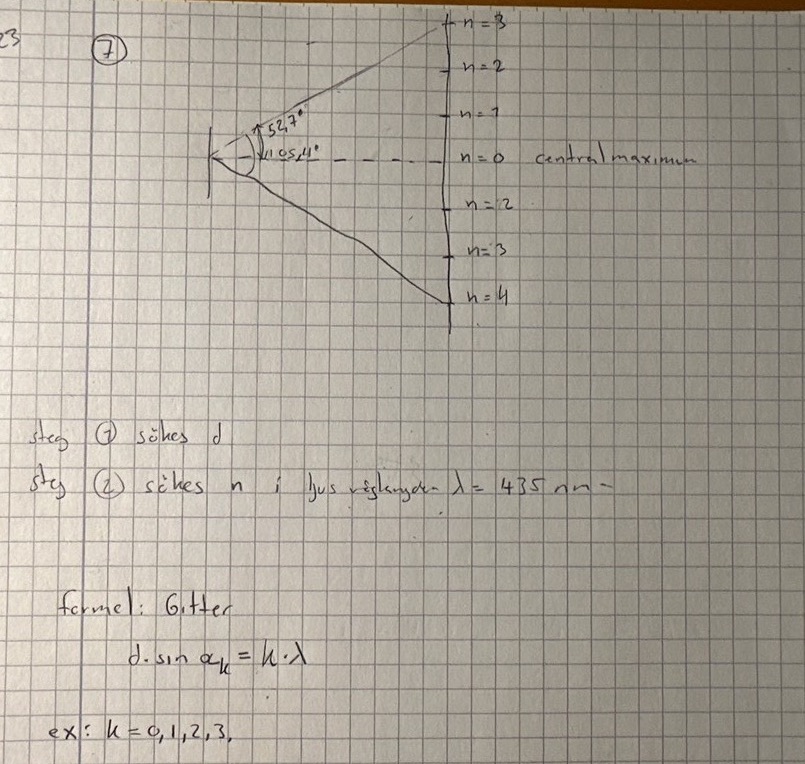 23
7
n=3
n=2
n=1
52,7°
105,4°
n=0 centralmaximum
n=2
n=3
n=4
steg ① sökes d
steg ② sökes n i ljus våglängden λ = 435 nm
formel: Gitter
d·sin αk = k·λ
ex: k = 0,1,2,3,